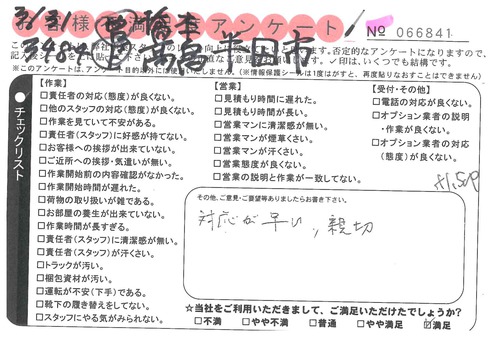 3/31
お客様満足度アンケート
№ 066841
橋本
高島 豊田市
良くない。否定的なアンケートになりますので、
✓印は、いくつでも結構です。
※このアンケートは、アンケート目的以外には使用いたしません。(※情報保護シールは1度はがすと、再度貼りなおすことはできません)
チェックリスト
【作業】
□責任者の対応(態度)が良くない。
□他のスタッフの対応(態度)が良くない。
□作業を見ていて不安がある。
□責任者(スタッフ)に好感が持てない。
□お客様への挨拶が出来ていない。
□ご近所への挨拶・気遣いが無い。
□作業開始前の内容確認がなかった。
□作業開始時間が遅れた。
□荷物の取り扱いが雑である。
□お部屋の養生が出来ていない。
□作業時間が長すぎる。
□責任者(スタッフ)に清潔感が無い。
□責任者(スタッフ)が汗くさい。
□トラックが汚い。
□梱包資材が汚い。
□運転が不安(下手)である。
□靴下の履き替えをしてない。
□スタッフにやる気がみられない。
【営業】
□見積もり時間に遅れた。
□見積もり時間が長い。
□営業マンに清潔感が無い。
□営業マンが煙草くさい。
□営業マンが汗くさい。
□営業態度が良くない。
□営業の説明と作業が一致してない。
【受付・その他】
□電話の対応が良くない。
□オプション業者の説明
・作業が良くない。
□オプション業者の対応
(態度)が良くない。
その他、ご意見・ご要望等ありましたらお書き下さい。
対応が早い,親切
☆当社をご利用いただきまして、ご満足いただけたでしょうか?
□不満 □やや不満 □普通 □やや満足 ☑満足